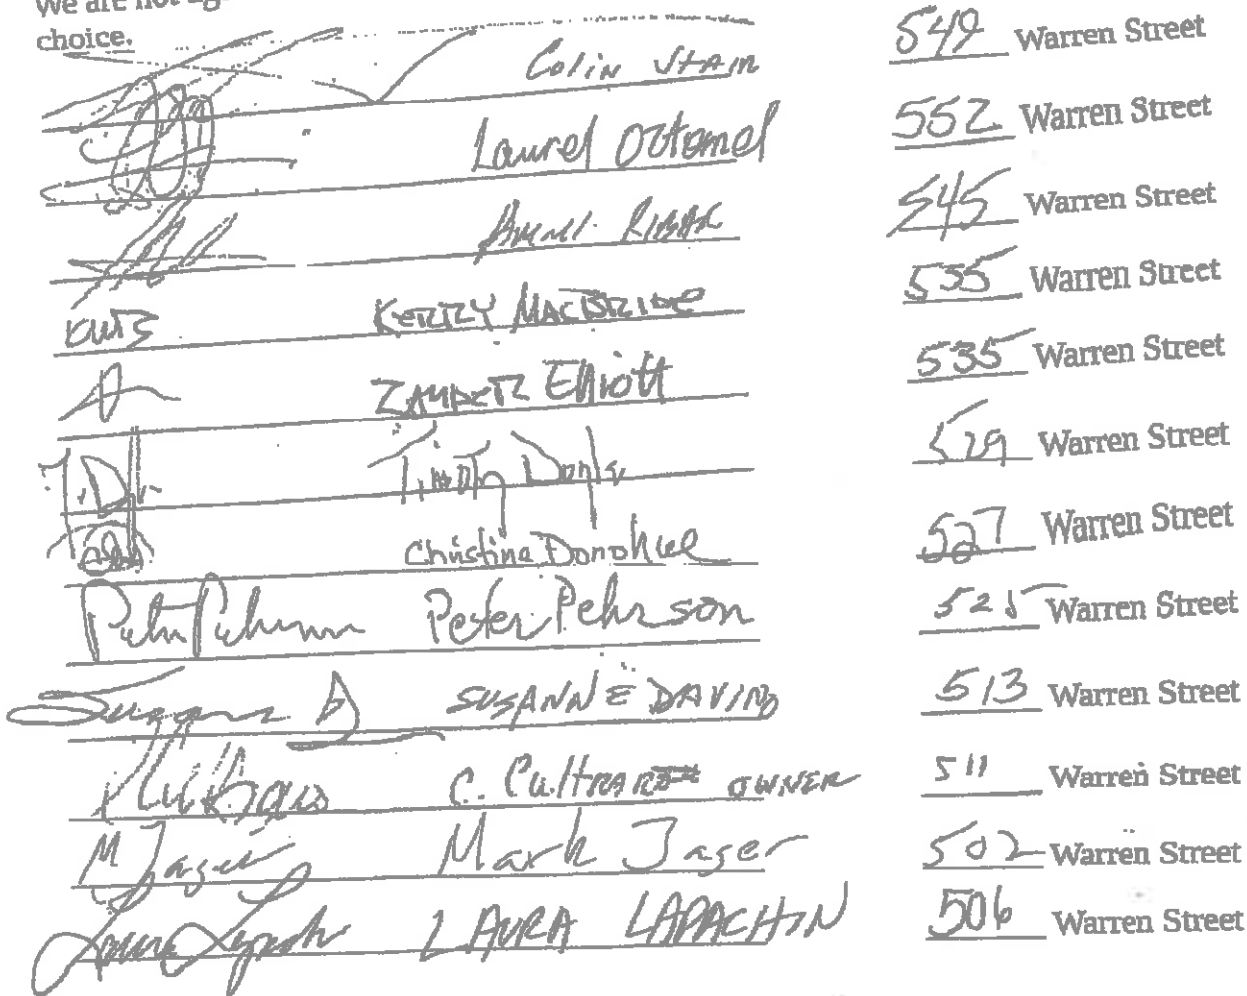 We are not
choice.
Colin Stair 549 Warren Street
Laurel 552 Warren Street
545 Warren Street
KMB KERRY MACBRIDE 535 Warren Street
ZANDER Elliott 535 Warren Street
T.D. Timothy 529 Warren Street
Christina Donohue 527 Warren Street
Peter Pehrson Peter Pehrson 525 Warren Street
Suzanne D SUSANNE DAVINO 513 Warren Street
C. OWNER 511 Warren Street
M Jager Mark Jager 502 Warren Street
Laura LAURA LAPACHIN 506 Warren Street